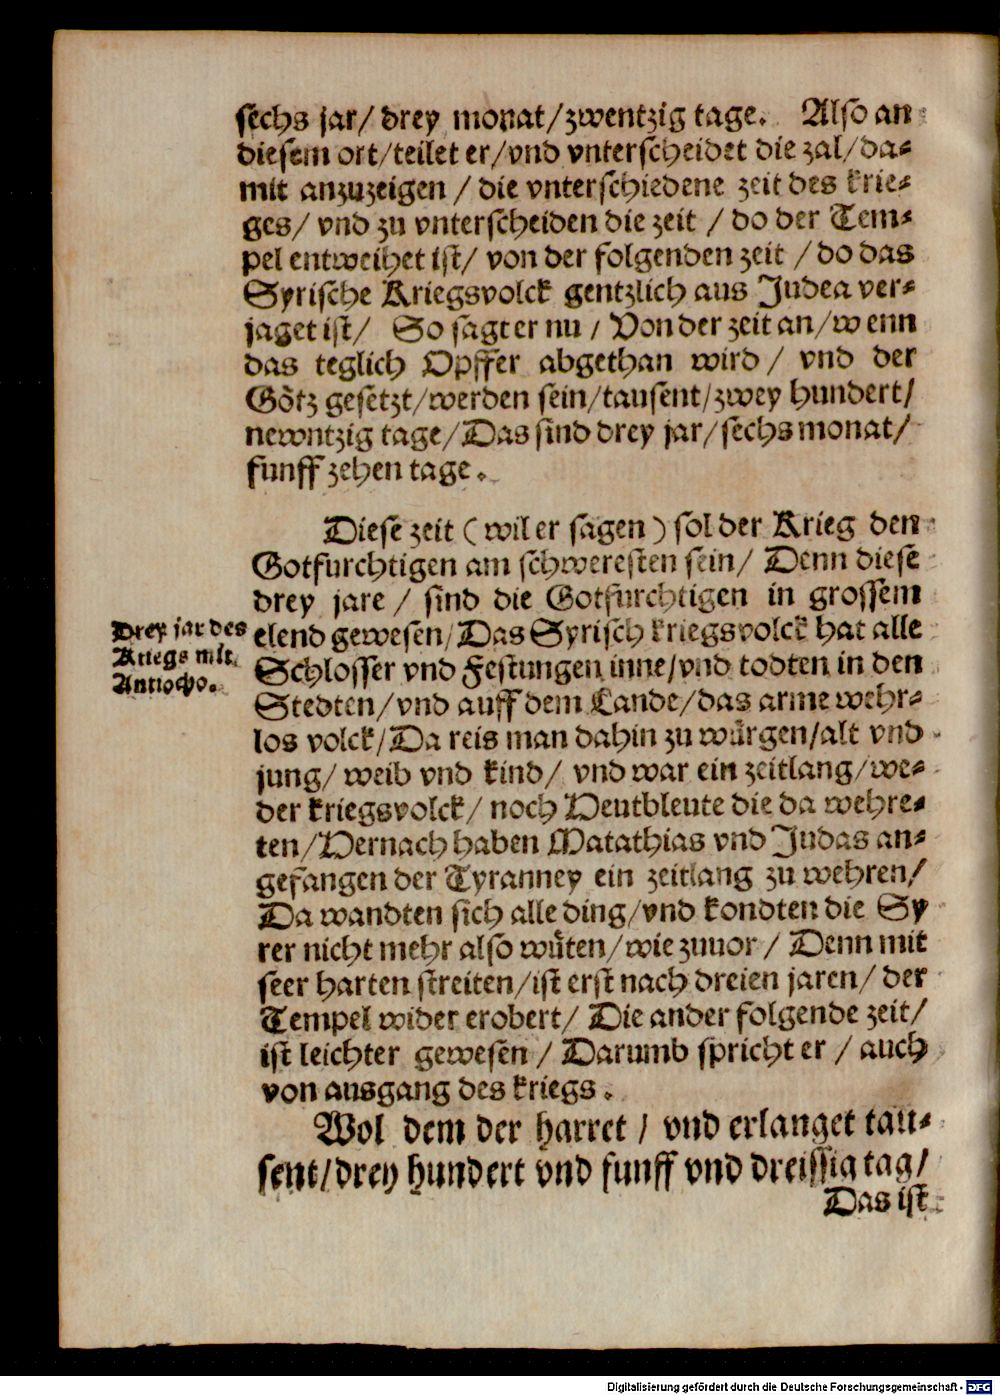 sechs jar/ drey monat/zwentzig tage. Also an
diesem ort/teilet er/vnd vnterscheidet die zal/da-
mit anzuzeigen / die vnterschiedene zeit des krie-
ges/ vnd zu vnterscheiden die zeit / do der Tem-
pel entweihet ist/ von der folgenden zeit / do das
Syrische Kriegsvolck gentzlich aus Judea ver-
jaget ist/ So sagt er nu / Von der zeit an/wenn
das teglich Opffer abgethan wird / vnd der
Götz gesetzt/werden sein/tausent/zwey hundert/
newntzig tage/Das sind drey jar/sechs monat/
funff zehen tage.
Diese zeit (wil er sagen) sol der Krieg den
Gotfurchtigen am schweresten sein/ Denn diese
drey jare / sind die Gotfurchtigen in grossem
Drey jar des
Kriegs mit
Antiocho.
elend gewesen/Das Syrisch kriegsvolck hat alle
Schlosser vnd Festungen inne/vnd todten in den
Stedten/vnd auff dem Lande/das arme wehr-
los volck/Da reis man dahin zu würgen/alt vnd
jung/ weib vnd kind/ vnd war ein zeitlang/we-
der kriegsvolck/ noch Heutbleute die da wehre-
ten/Hernach haben Matathias vnd Judas an-
gefangen der Tyranney ein zeitlang zu wehren/
Da wandten sich alle ding/vnd kondten die Sy
rer nicht mehr also wüten/wie zuuor / Denn mit
seer harten streiten/ist erst nach dreien jaren/ der
Tempel wider erobert/ Die ander folgende zeit/
ist leichter gewesen / Darumb spricht er / auch
von ausgang des kriegs.
Wol dem der harret / vnd erlanget tau-
sent/drey hundert vnd funff vnd dreissig tag/
Das ist
Digitalisierung gefördert durch die Deutsche Forschungsgemeinschaft - DFG